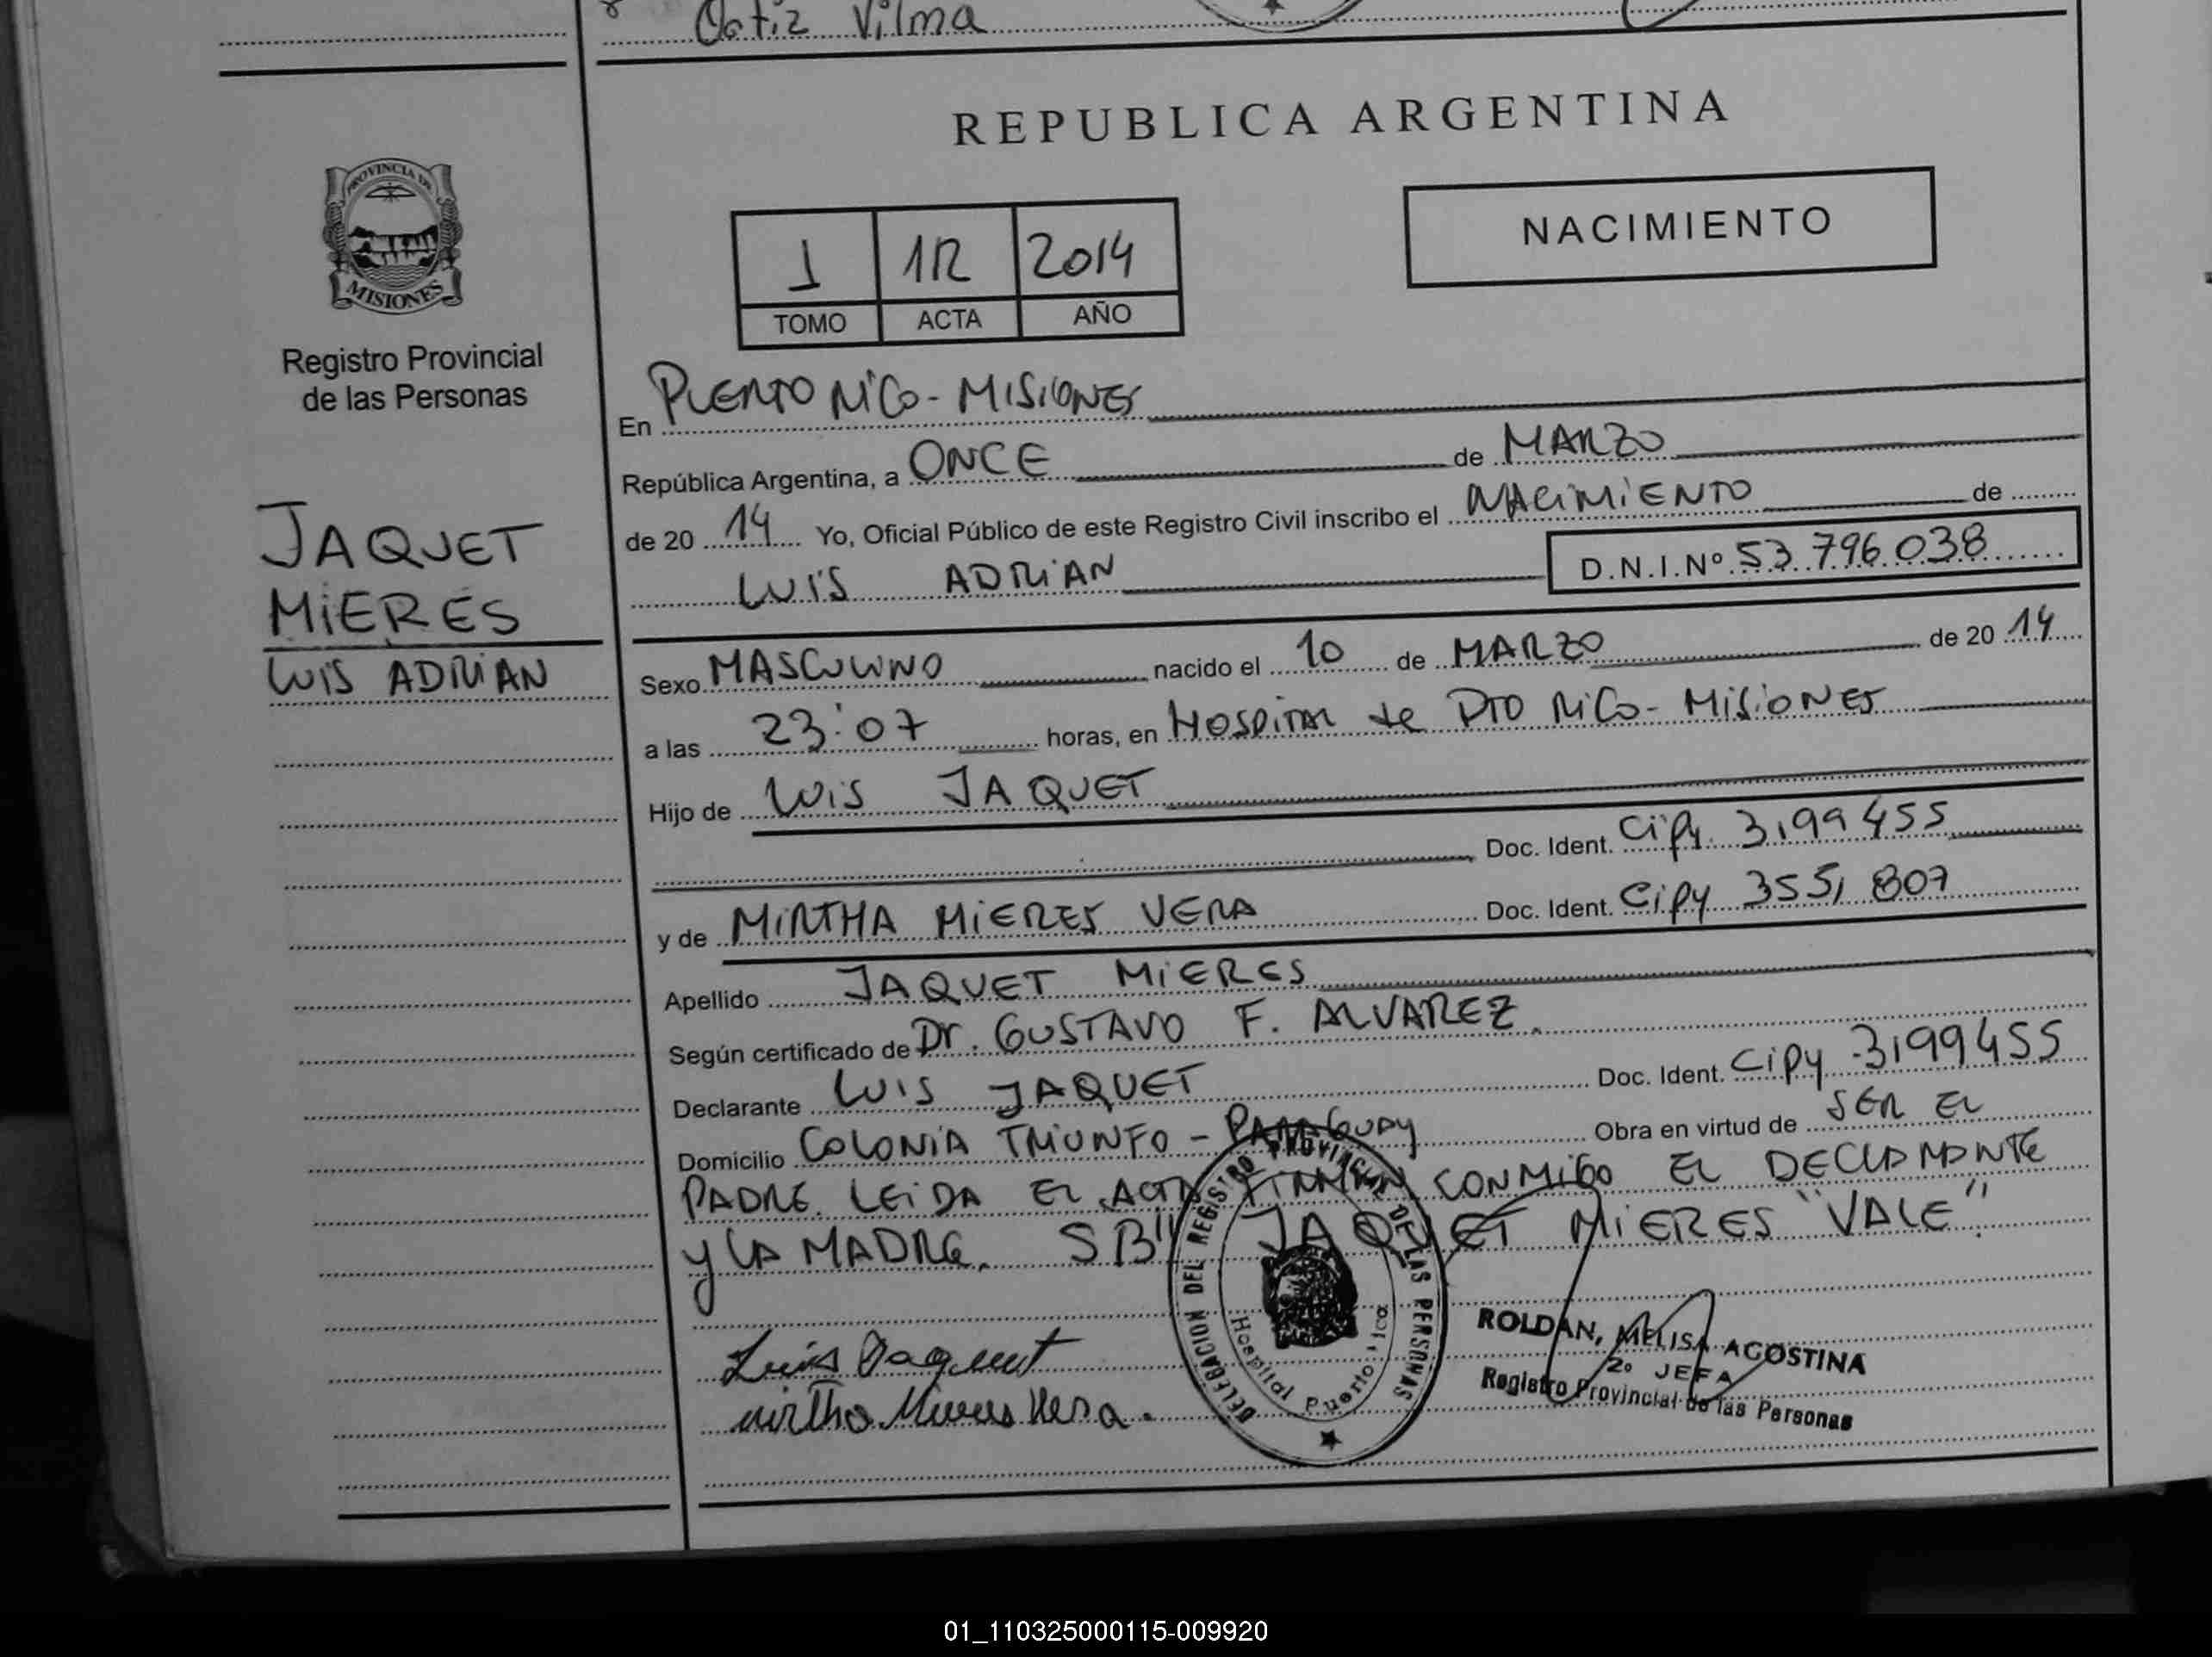 Ortiz Vilma
REPUBLICA ARGENTINA
PROVINCIA DE
MISIONES
Registro Provincial
de las Personas
NACIMIENTO
1 112 2014
TOMO ACTA AÑO
JAQUET
MIERES
LUIS ADRIAN
En PUERTO RICO - MISIONES
República Argentina, a ONCE de MARZO
de 20 14 Yo, Oficial Público de este Registro Civil inscribo el NACIMIENTO de
LUIS ADRIAN D.N.I.Nº 53 796 038
Sexo MASCULINO nacido el 10 de MARZO de 20 14
a las 23:07 horas, en HOSPITAL de PTO RICO - MISIONES
Hijo de LUIS JAQUET
Doc. Ident. Cipy. 3199455
y de MIRTHA MIERES VERA Doc. Ident. Cipy 3551807
Apellido JAQUET MIERES
Según certificado de Dr. GUSTAVO F. ALVAREZ.
Declarante LUIS JAQUET Doc. Ident. Cipy 3199455
Domicilio COLONIA TRIUNFO - PARAGUAY Obra en virtud de SER EL
PADRE. LEIDA EL ACTA FIRMAN CONMIGO EL DECLARANTE
Y LA MADRE. SB" JAQUET MIERES "VALE".
Luis Jaquet
mirtha Mieres Vera.
DELEGACION DEL REGISTRO PROVINCIAL DE LAS PERSONAS
Hospital Puerto Rico
ROLDAN, MELISA AGOSTINA
2º JEFA
Registro Provincial de las Personas
01_110325000115-009920